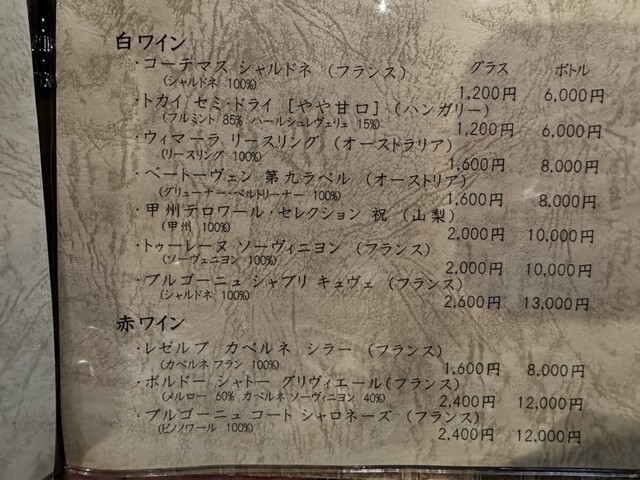 白ワイン
グラス ボトル
・コーデマス シャルドネ (フランス)
(シャルドネ 100%)
1,200円 6,000円
・トカイ セミ・ドライ [やや甘口] (ハンガリー)
(フルミント 85% ハールシュレヴェリュ 15%)
1,200円 6,000円
・ウィマーラ リースリング (オーストラリア)
(リースリング 100%)
1,600円 8,000円
・ベートーヴェン 第九ラベル (オーストリア)
(グリューナー・ベルトリーナー 100%)
1,600円 8,000円
・甲州テロワール・セレクション 祝 (山梨)
(甲州 100%)
2,000円 10,000円
・トゥーレーヌ ソーヴィニヨン (フランス)
(ソーヴェニヨン 100%)
2,000円 10,000円
・ブルゴーニュ シャブリ キュヴェ (フランス)
(シャルドネ 100%)
2,600円 13,000円
赤ワイン
・レゼルブ カベルネ シラー (フランス)
(カベルネ フラン 100%)
1,600円 8,000円
・ボルドー シャトー グリヴィエール(フランス)
(メルロー 60% カベルネ ソーヴィニヨン 40%)
2,400円 12,000円
・ブルゴーニュ コート シャロネーズ (フランス)
(ピノノワール 100%)
2,400円 12,000円